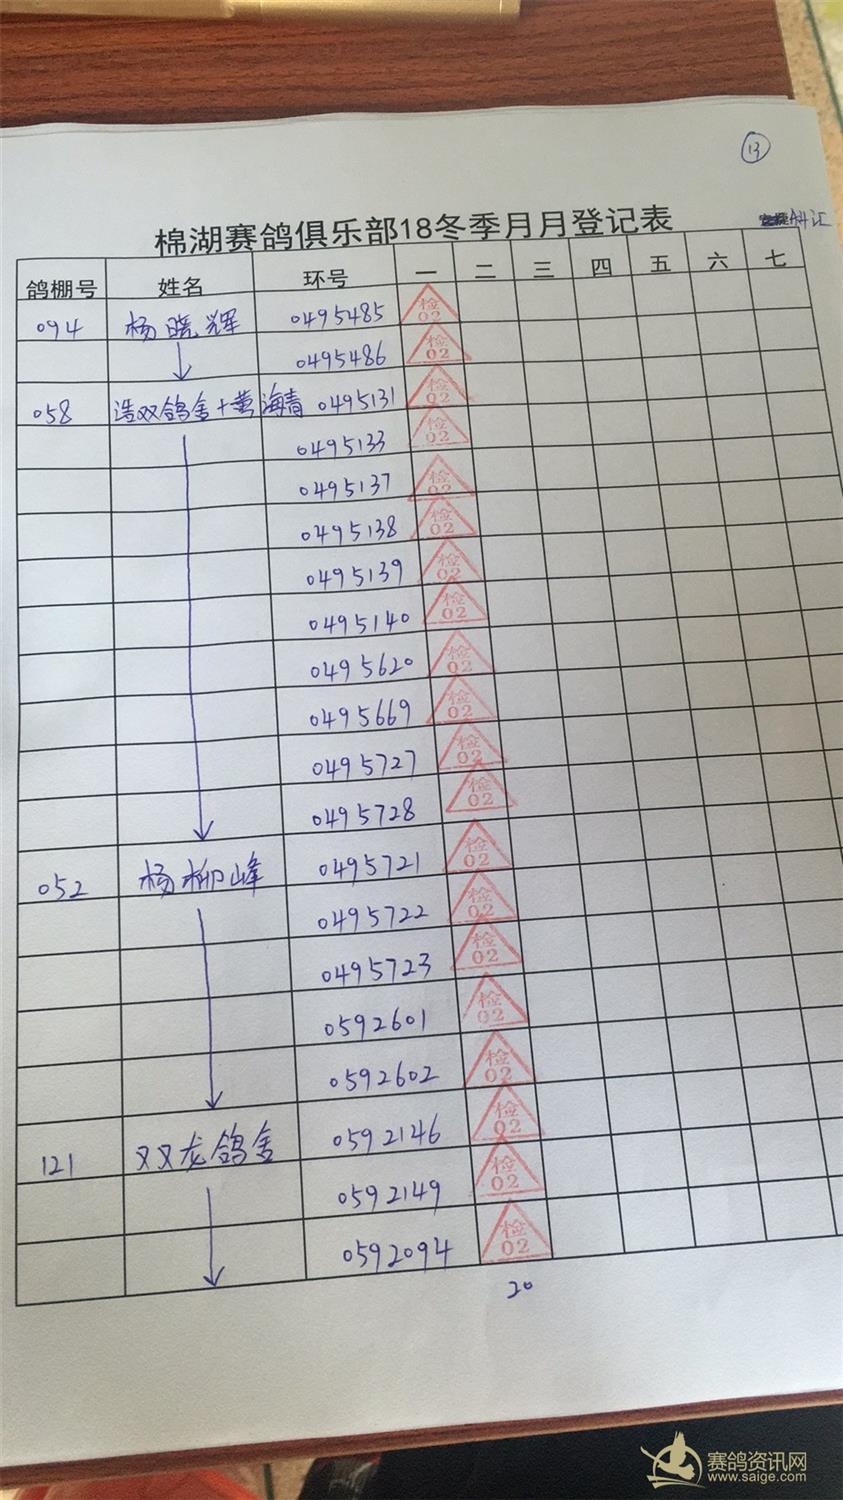 13
棉湖赛鸽俱乐部18冬季月月登记表
汇
鸽棚号 姓名 环号 一 二 三 四 五 六 七
094 杨晓辉 0495485 检02
0495486 检02
058 浩双鸽舍+黄海青 0495131 检02
0495133 检02
0495137 检02
0495138 检02
0495139 检02
0495140 检02
0495620 检02
0495669 检02
0495727 检02
0495728 检02
052 杨柳峰 0495721 检02
0495722 检02
0495723 检02
0592601 检02
0592602 检02
121 双双龙鸽舍 0592146 检02
0592149 检02
0592094 检02
20
赛鸽资讯网
www.saige.com